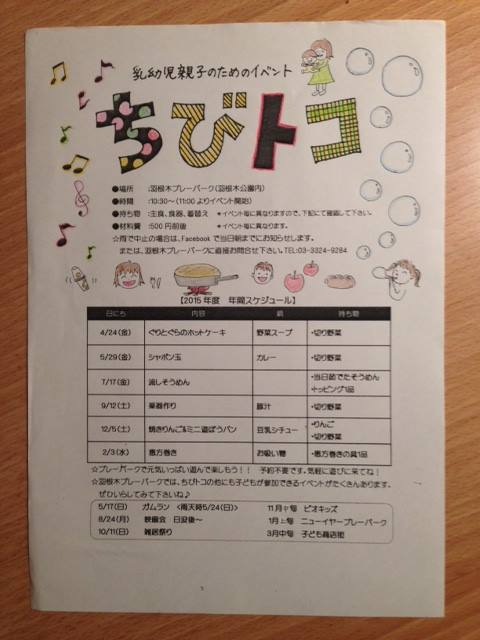 乳幼児親子のためのイベント
ちびトコ
●場所 :羽根木プレーパーク(羽根木公園内)
●時間 :10:30~(11:00よりイベント開始)
●持ち物 :主食、食器、着替え *イベント毎に異なりますので、下記にて確認して下さい。
●材料費 :500円前後 *イベント毎に異なります。
☆雨で中止の場合は、Facebookで当日朝までにお知らせします。
または、羽根木プレーパークに直接お問合せ下さい。TEL:03-3324-9284
【2015年度 年間スケジュール】
日にち 内容 鍋 持ち物
4/24(金) ぐりとぐらのホットケーキ 野菜スープ ・切り野菜
5/29(金) シャボン玉 カレー ・切り野菜
7/17(金) 流しそうめん ・当日茹でたそうめん
・トッピング1品
9/12(土) 楽器作り 豚汁 ・切り野菜
12/5(土) 焼きりんご&ミニ遊ぼうパン 豆乳シチュー ・りんご
・切り野菜
2/3(水) 恵方巻き お吸い物 ・恵方巻きの具1品
☆プレーパークで元気いっぱい遊んで楽しもう!! 予約不要です。気軽に遊びに来てね!
☆羽根木プレーパークでは、ちびトコの他にも子どもが参加できるイベントがたくさんあります。
ぜひいらしてみて下さいね♪
5/17(日) ガムラン <雨天時5/24(日)> 11月中旬 ビオキッズ
8/24(月) 映画会 日没後~ 1月上旬 ニューイヤープレーパーク
10/11(日) 雑居祭り 3月中旬 子ども商店街